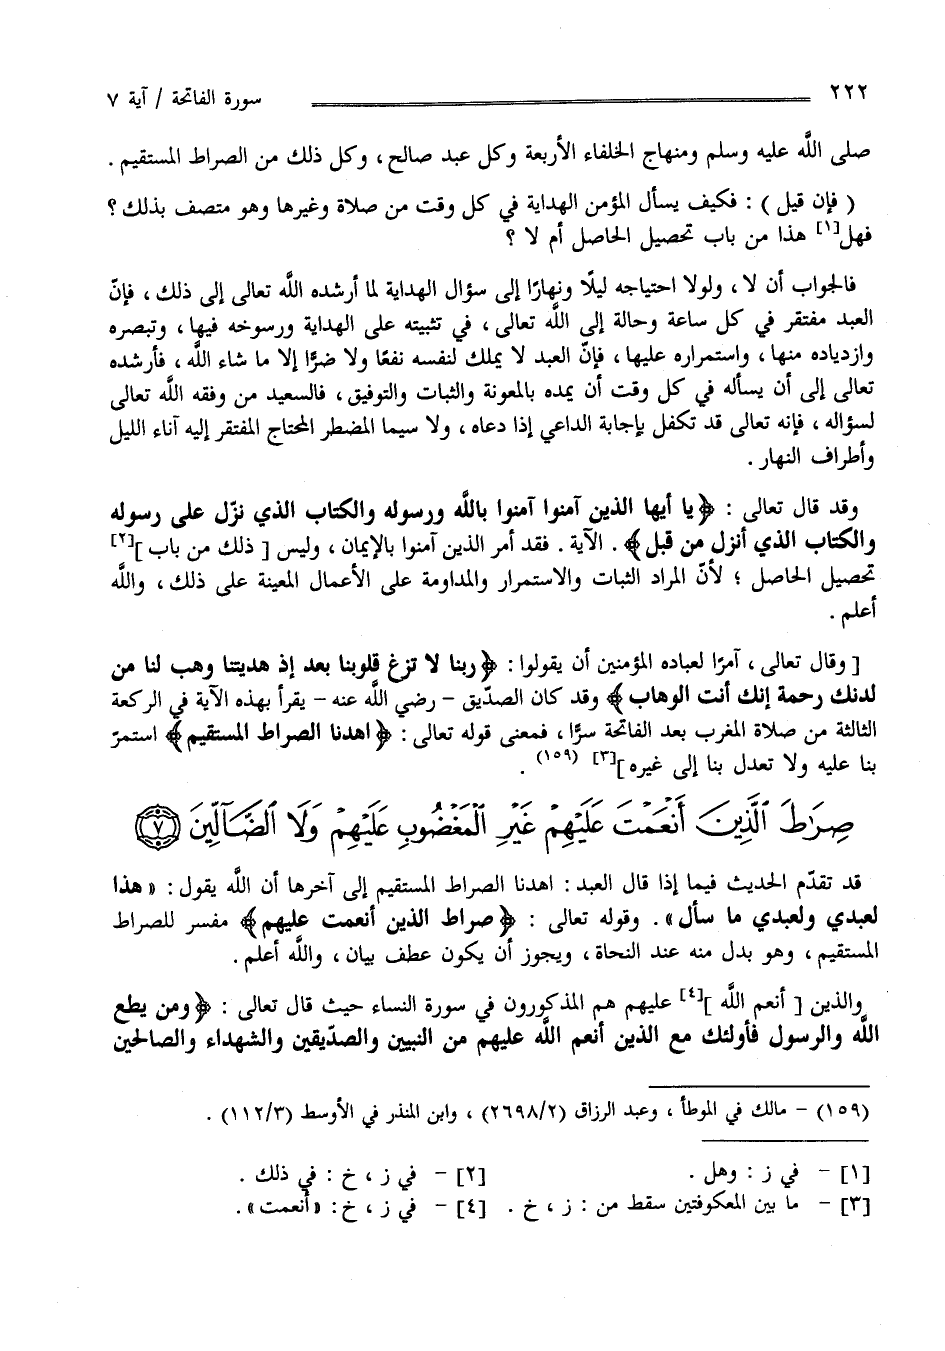 ٢٢٢ سورة الفاتحة / آية ٧
صلى اللَّه عليه وسلم ومنهاج الخلفاء الأربعة وكل عبد صالح ، وكل ذلك من الصراط المستقيم .
( فإن قيل ) : فكيف يسأل المؤمن الهداية في كل وقت من صلاة وغيرها وهو متصف بذلك ؟
فهل[١] هذا من باب تحصيل الحاصل أم لا ؟
فالجواب أن لا ، ولولا احتياجه ليلًا ونهارًا إلى سؤال الهداية لما أرشده اللَّه تعالى إلى ذلك ، فإنّ
العبد مفتقر في كل ساعة وحالة إلى اللَّه تعالى ، في تثبيته على الهداية ورسوخه فيها ، وتبصره
وازدياده منها ، واستمراره عليها ، فإنّ العبد لا يملك لنفسه نفعًا ولا ضرًّا إلا ما شاء اللَّه ، فأرشده
تعالى إلى أن يسأله في كل وقت أن يمده بالمعونة والثبات والتوفيق ، فالسعيد من وفقه اللَّه تعالى
لسؤاله ، فإنه تعالى قد تكفل بإجابة الداعي إذا دعاه ، ولا سيما المضطر المحتاج المفتقر إليه آناء الليل
وأطراف النهار .
وقد قال تعالى : ﴿ يا أيها الذين آمنوا آمنوا باللَّه ورسوله والكتاب الذي نزّل على رسوله
والكتاب الذي أنزل من قبل ﴾ . الآية . فقد أمر الذين آمنوا بالإيمان ، وليس [ ذلك من باب ][٢]
تحصيل الحاصل ؛ لأنّ المراد الثبات والاستمرار والمداومة على الأعمال المعينة على ذلك ، واللَّه
أعلم .
[ وقال تعالى ، آمرًا لعباده المؤمنين أن يقولوا : ﴿ ربنا لا تزغ قلوبنا بعد إذ هديتنا وهب لنا من
لدنك رحمة إنك أنت الوهاب ﴾ وقد كان الصدّيق - رضي اللَّه عنه - يقرأ بهذه الآية في الركعة
الثالثة من صلاة المغرب بعد الفاتحة سرًّا ، فمعنى قوله تعالى : ﴿ اهدنا الصراط المستقيم ﴾ استمرّ
بنا عليه ولا تعدل بنا إلى غيره ][٣] (١٥٩) .
صِرَٰطَ ٱلَّذِينَ أَنْعَمْتَ عَلَيْهِمْ غَيْرِ ٱلْمَغْضُوبِ عَلَيْهِمْ وَلَا ٱلضَّآلِّينَ ٧
قد تقدّم الحديث فيما إذا قال العبد : اهدنا الصراط المستقيم إلى آخرها أن اللَّه يقول : « هذا
لعبدي ولعبدي ما سأل » . وقوله تعالى : ﴿ صراط الذين أنعمت عليهم ﴾ مفسر للصراط
المستقيم ، وهو بدل منه عند النحاة ، ويجوز أن يكون عطف بيان ، واللَّه أعلم .
والذين [ أنعم اللَّه ][٤] عليهم هم المذكورون في سورة النساء حيث قال تعالى : ﴿ ومن يطع
اللَّه والرسول فأولئك مع الذين أنعم اللَّه عليهم من النبيين والصدّيقين والشهداء والصالحين
(١٥٩) - مالك في الموطأ ، وعبد الرزاق (٢٦٩٨/٢) ، وابن المنذر في الأوسط (١١٢/٣) .
[١] - في ز : وهل . [٢] - في ز ، خ : في ذلك .
[٣] - ما بين المعكوفتين سقط من : ز ، خ . [٤] - في ز ، خ : « أنعمت » .